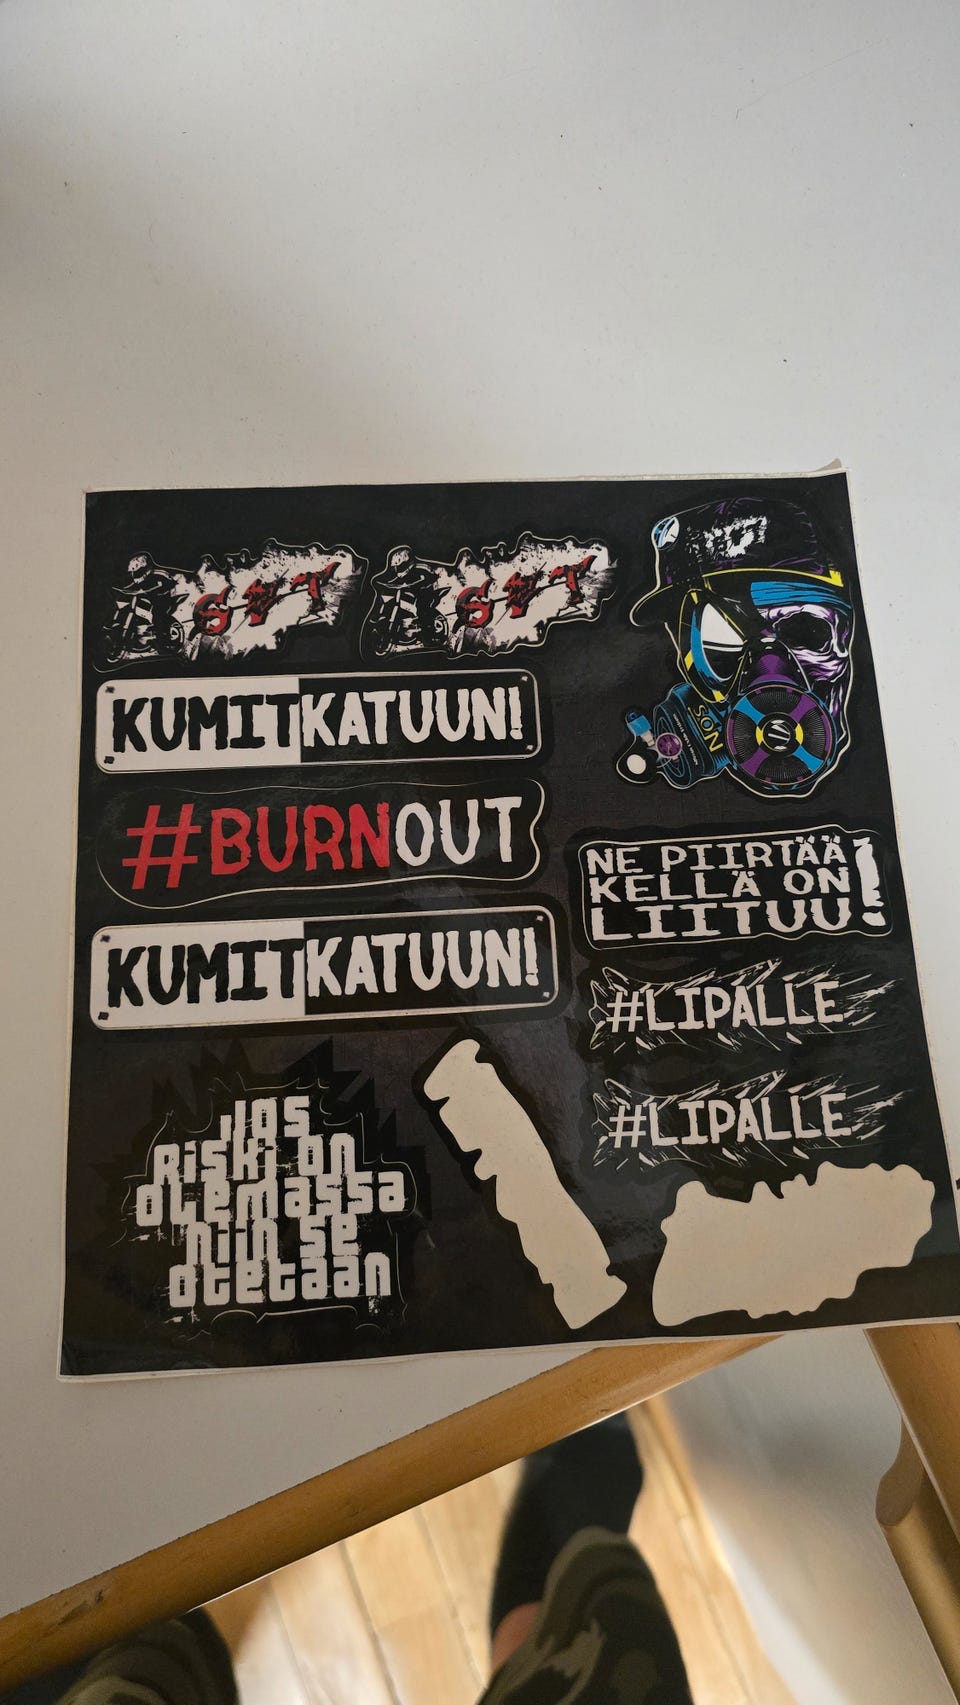 KUMITKATUUN!
#BURNOUT
KUMITKATUUN!
JOS
RISKI ON
OLEMASSA
NIIN SE
OTETAAN
NOS
NE PIIRTÄÄ
KELLÄ ON
LIITUU!
#LIPALLE
#LIPALLE